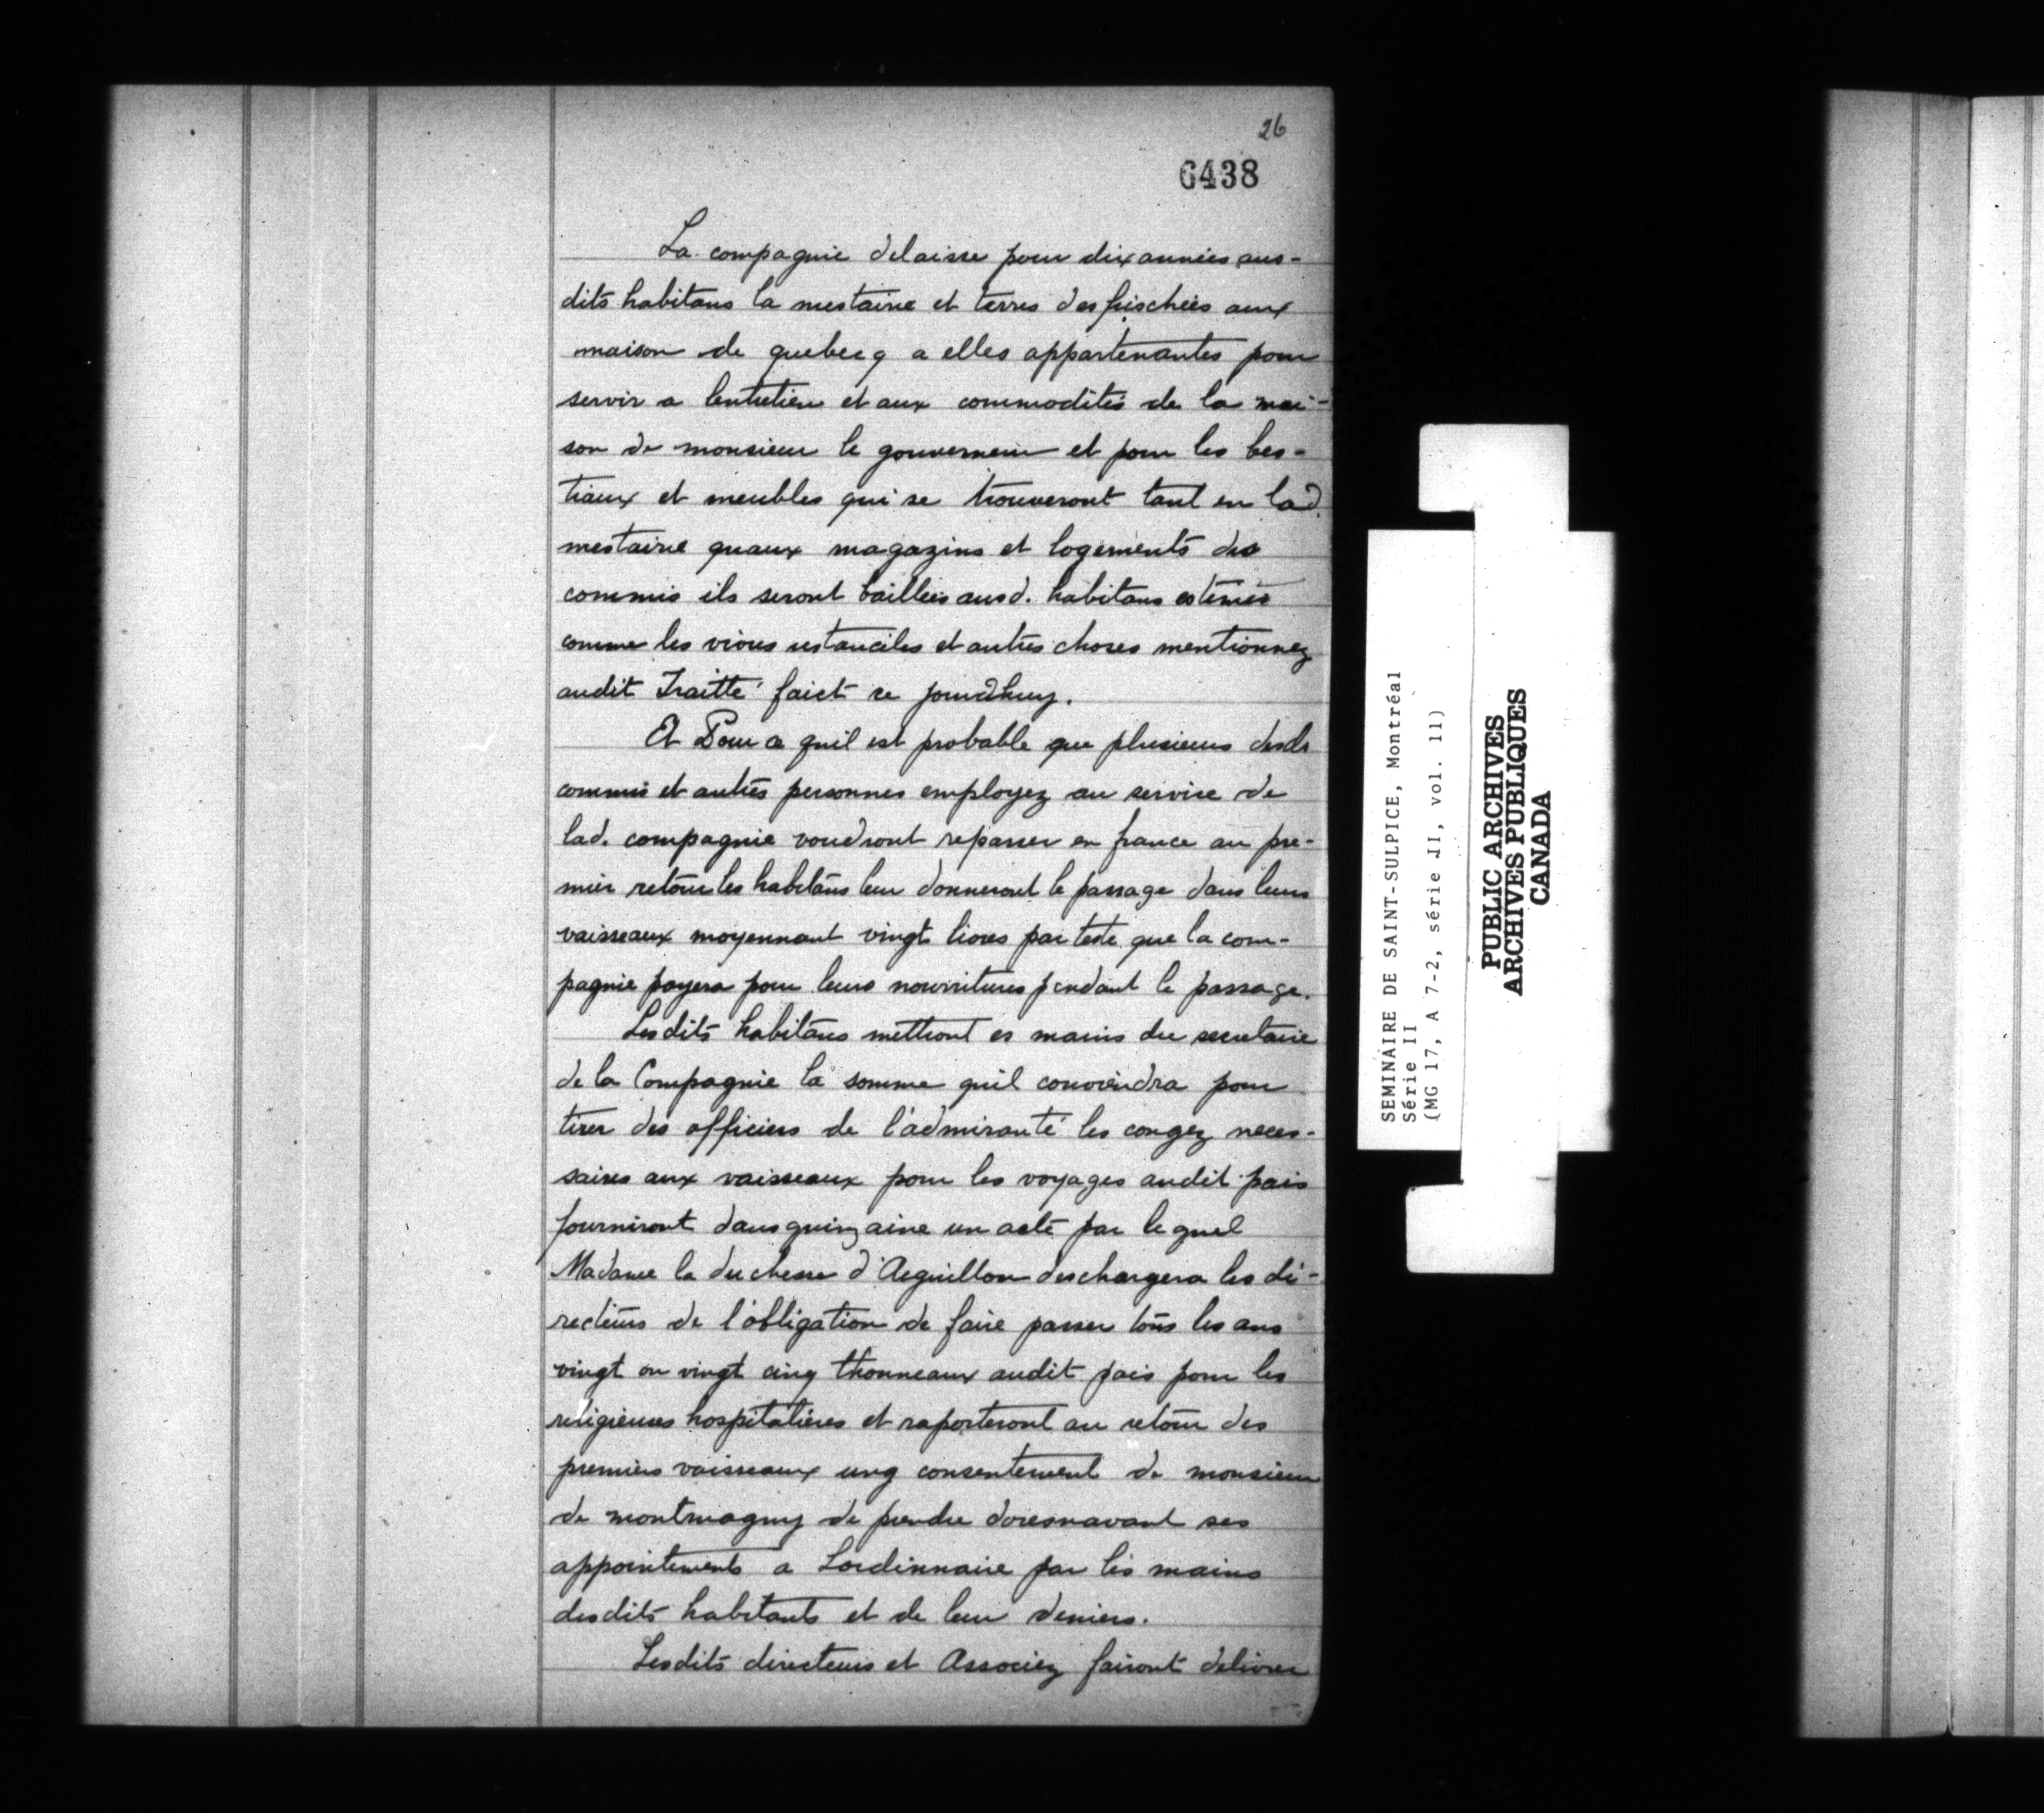 26
6438
La compagnie delaisse pour dix années aus-
dits habitans la mestairie et terres desfrischées aux
maison de quebecq a elles appartenantes pour
servir a lentretien et aux commodités de la mai-
son de monsieur le gouverneur et pour les bes-
tiaux et meubles qui se trouveront tant en lad.
mestairie quaux magazins et logements des
commis ils seront baillées ausd. habitans estimés
comme les vivres ustanciles et autres choses mentionnez
audit Traitté faict ce jourdhuy.
Et Pour ce quil est probable que plusieurs desds
commis et autres personnes employez au service de
lad. compagnie voudront repasser en france au pre-
mier retour les habitans leur donneront le passage dans leurs
vaisseaux moyennant vingt livres par teste que la com-
pagnie payera pour leurs nourritures pendant le passage.
Lesdits habitans mettront es mains du secretaire
de la Compagnie la somme quil conviendra pour
tirer des officiers de l'admirauté les congez neces-
saires aux vaisseaux pour les voyages audit pais
fourniront dans quinzaine un acte par le quel
Madame la duchesse d'Aeguillon deschargera les di-
recteurs de l'obligation de faire passer tous les ans
vingt ou vingt cinq thonneaux audit pais pour les
religieuses hospitalières et raporteront au retour des
premiers vaisseaux ung consentement de monsieur
de montmagny de prendre doresnavant ses
appointements a Lordinnaire par les mains
desdits habitants et de leur deniers.
Lesdits directeurs et Associez fairont delivrer
SEMINAIRE DE SAINT-SULPICE, Montréal
Série II
(MG 17, A 7-2, série II, vol. 11)
PUBLIC ARCHIVES
ARCHIVES PUBLIQUES
CANADA